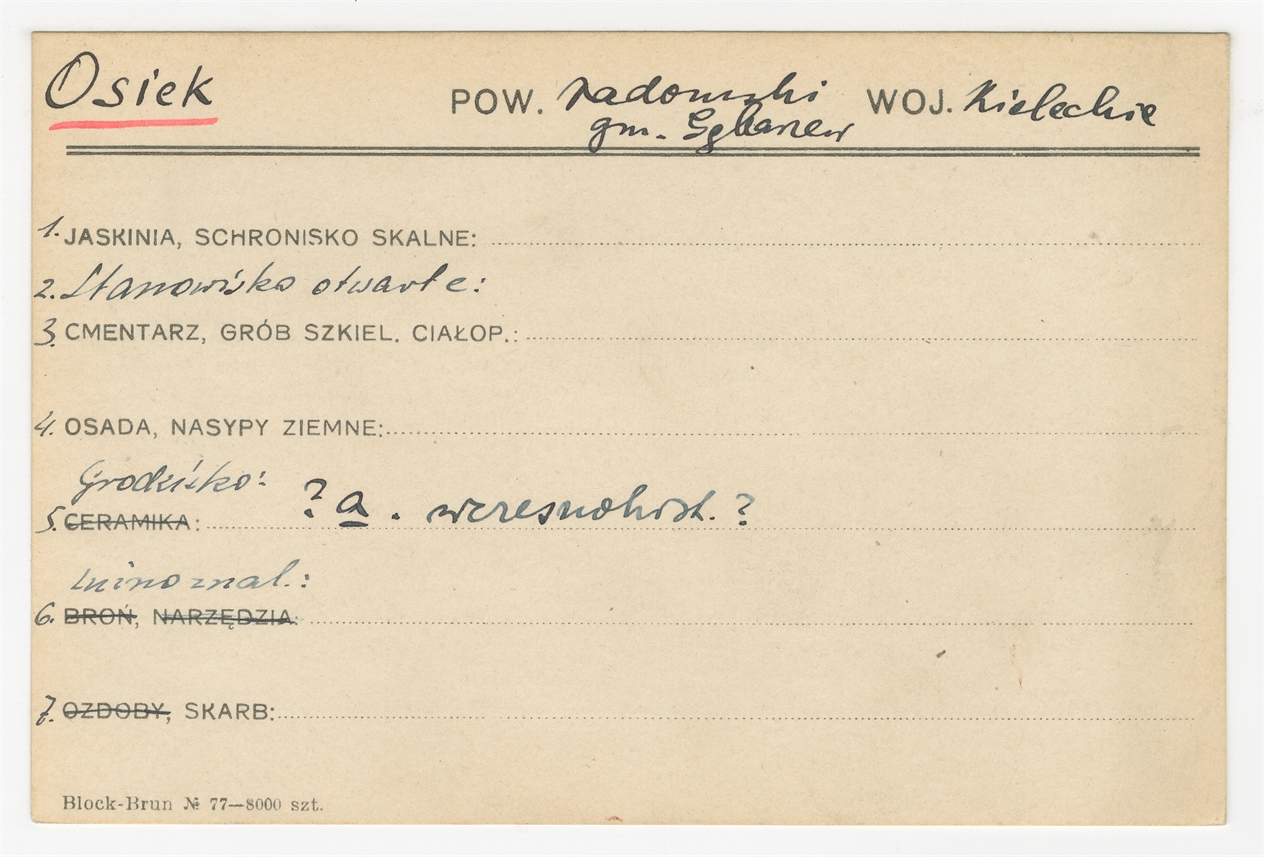 Osiek POW. radomski WOJ. Kieleckie
gm.
1. JASKINIA, SCHRONISKO SKALNE:
2. Stanowisko otwarte:
3. CMENTARZ, GRÓB SZKIEL. CIAŁOP.:
4. OSADA, NASYPY ZIEMNE:
Grodzisko:
5. CERAMIKA: ? a . wczesnohist. ?
Luźno znal.:
6. BROŃ, NARZĘDZIA:
7. OZDOBY, SKARB:
Block-Brun № 77—8000 szt.